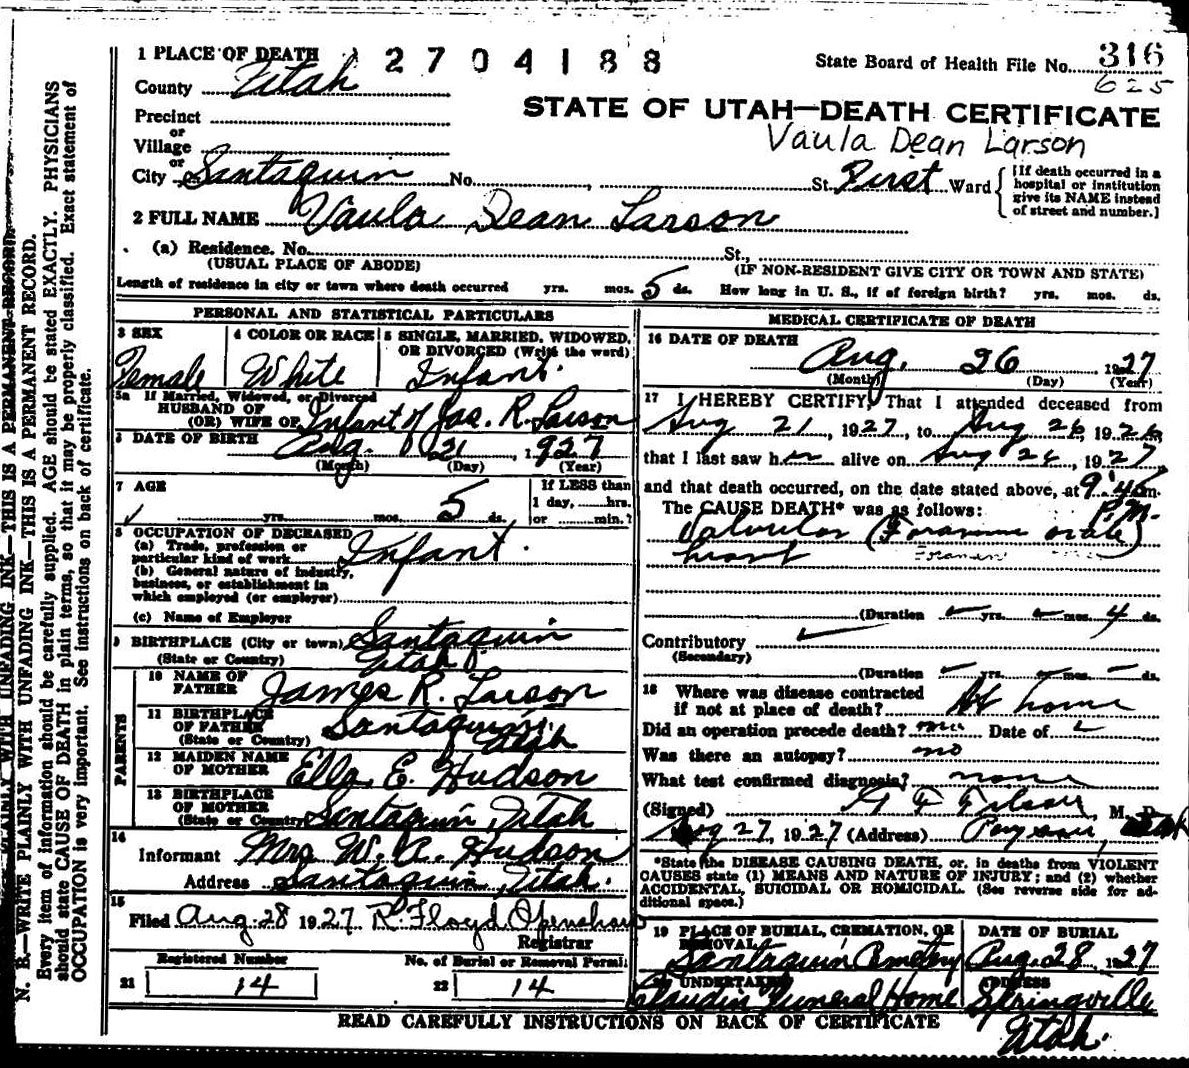 1 PLACE OF DEATH
2704188
State Board of Health File No. 316
County Utah
625
STATE OF UTAH—DEATH CERTIFICATE
Precinct
or
Village
Vaula Dean Larson
or
City Santaquin No. , St. First Ward
[If death occurred in a
hospital or institution
give its NAME instead
of street and number.]
2 FULL NAME Vaula Dean Larson
(a) Residence. No. St.,
(USUAL PLACE OF ABODE) (IF NON-RESIDENT GIVE CITY OR TOWN AND STATE)
Length of residence in city or town where death occurred yrs. mos. 5 ds. How long in U. S., if of foreign birth? yrs. mos. ds.
PERSONAL AND STATISTICAL PARTICULARS
3 SEX
Female
4 COLOR OR RACE
White
5 SINGLE, MARRIED, WIDOWED,
OR DIVORCED (Write the word)
Infant.
5a If Married, Widowed, or Divorced
HUSBAND OF
(OR) WIFE OF Infant of Jas. R. Larson
6 DATE OF BIRTH Aug. 21, 1927
(Month) (Day) (Year)
7 AGE
yrs. mos. 5 ds.
If LESS than
1 day, hrs.
or min.?
8 OCCUPATION OF DECEASED
(a) Trade, profession or
particular kind of work Infant.
(b) General nature of industry,
business, or establishment in
which employed (or employer)
(c) Name of Employer
9 BIRTHPLACE (City or town) Santaquin
(State or Country) Utah
PARENTS
10 NAME OF
FATHER James R. Larson
11 BIRTHPLACE
OF FATHER Santaquin
(State or Country) Utah
12 MAIDEN NAME
OF MOTHER Ella E. Hudson
13 BIRTHPLACE
OF MOTHER
(State or Country) Santaquin, Utah
14
Informant Mrs W. A. Hudson
Address Santaquin, Utah.
15
Filed Aug 28 1927 R. Floyd Openshaw
Registrar
Registered Number
21 14
No. of Burial or Removal Permit
22 14
MEDICAL CERTIFICATE OF DEATH
16 DATE OF DEATH
Aug. 26 1927
(Month) (Day) (Year)
17 I HEREBY CERTIFY, That I attended deceased from
Aug 21, 1927, to Aug 26, 1926,
that I last saw her alive on Aug 26, 1927,
and that death occurred, on the date stated above, at 9:45 m.
P.M.
The CAUSE DEATH* was as follows:
Valvular (Foramen ovale)
heart
(Duration yrs. mos. 4 ds.
Contributory
(Secondary)
(Duration yrs. mos. ds.
18 Where was disease contracted
if not at place of death? At home
Did an operation precede death? no Date of
Was there an autopsy? no
What test confirmed diagnosis? none
(Signed) M. D.
Aug 27, 1927 (Address) Payson, Utah
*State the DISEASE CAUSING DEATH, or, in deaths from VIOLENT
CAUSES state (1) MEANS AND NATURE OF INJURY; and (2) whether
ACCIDENTAL, SUICIDAL OR HOMICIDAL. (See reverse side for ad-
ditional space.)
19 PLACE OF BURIAL, CREMATION, OR
REMOVAL
Santaquin Cemetery
DATE OF BURIAL
Aug. 28, 1927
UNDERTAKER
Claudin Funeral Home
ADDRESS
Springville
Utah.
READ CAREFULLY INSTRUCTIONS ON BACK OF CERTIFICATE
N. B.—WRITE PLAINLY WITH UNFADING INK—THIS IS A PERMANENT RECORD.
Every item of information should be carefully supplied. AGE should be stated EXACTLY. PHYSICIANS
should state CAUSE OF DEATH in plain terms, so that it may be properly classified. Exact statement of
OCCUPATION is very important. See instructions on back of certificate.